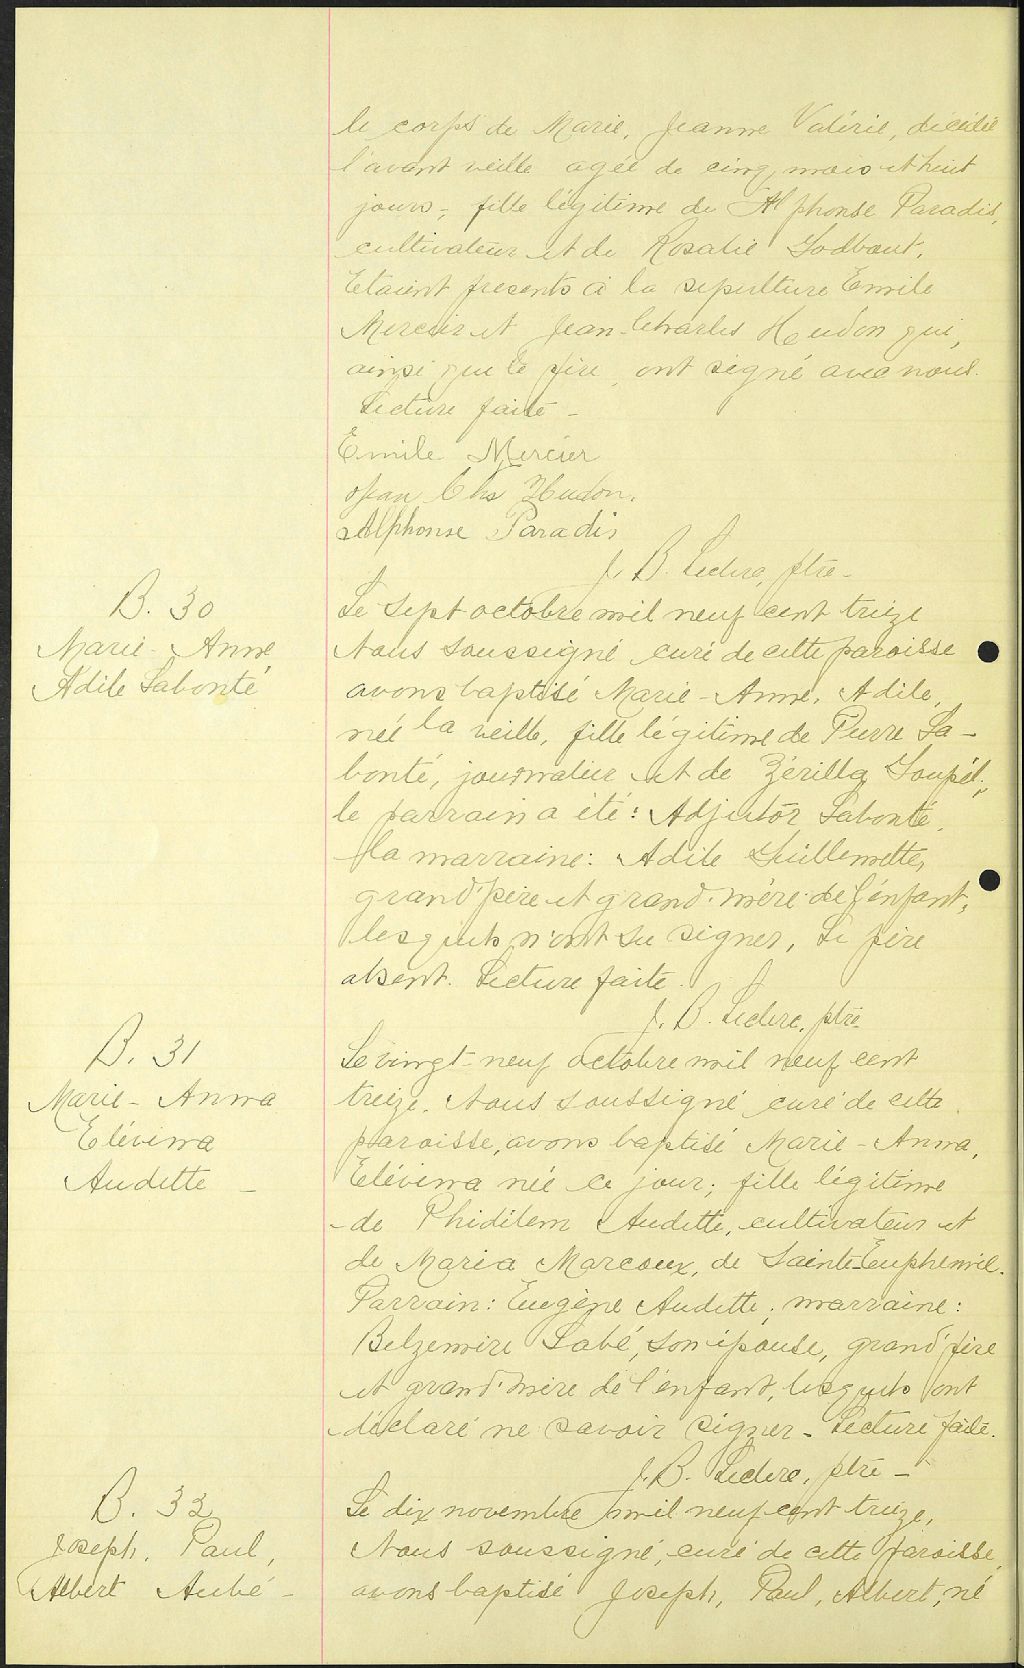 le corps de Marie, Jeanne Valérie, décédée
l'avant veille agée de cinq mois et huit
jours; fille légitime de Alphonse Paradis,
cultivateur et de Rosalie Godbout.
Etaient presents à la sepulture Emile
Mercier et Jean-Charles Heudon qui,
ainsi que le père, ont signé avec nous.
Lecture faite -
Emile Mercier
Jean Chs Hudon.
Alphonse Paradis
J. B. Leclerc, ptre -
B. 30
Marie-Anne
Adile Labonté
Le sept octobre mil neuf cent treize
Nous soussigné curé de cette paroisse
avons baptisé Marie-Anne, Adile,
née la veille, fille légitime de Pierre La-
bonté, journalier et de Zérilla Goupil;
le parrain a été: Adjutor Labonté,
la marraine: Adile Guillemette,
grand'père et grand'mère de l'enfant,
lesquels n'ont su signer, Le père
absent. Lecture faite.
J. B. Leclerc, ptre
B. 31
Marie-Anna
Elévina
Audette -
Le vingt-neuf octobre mil neuf cent
treize, Nous soussigné curé de cette
paroisse, avons baptisé Marie-Anna,
Elévina née ce jour; fille légitime
de Phidilem Audette, cultivateur et
de Maria Marcoux, de Sainte-Euphémie.
Parrain: Eugène Audette; marraine:
Belzemire Labé, son épouse, grand'père
et grand'mère de l'enfant, lesquels ont
déclaré ne savoir signer - Lecture faite.
J. B. Leclerc, ptre -
B. 32
Joseph, Paul,
Albert Aubé -
Le dix novembre mil neuf cent treize,
Nous soussigné, curé de cette paroisse,
avons baptisé Joseph, Paul, Albert, né